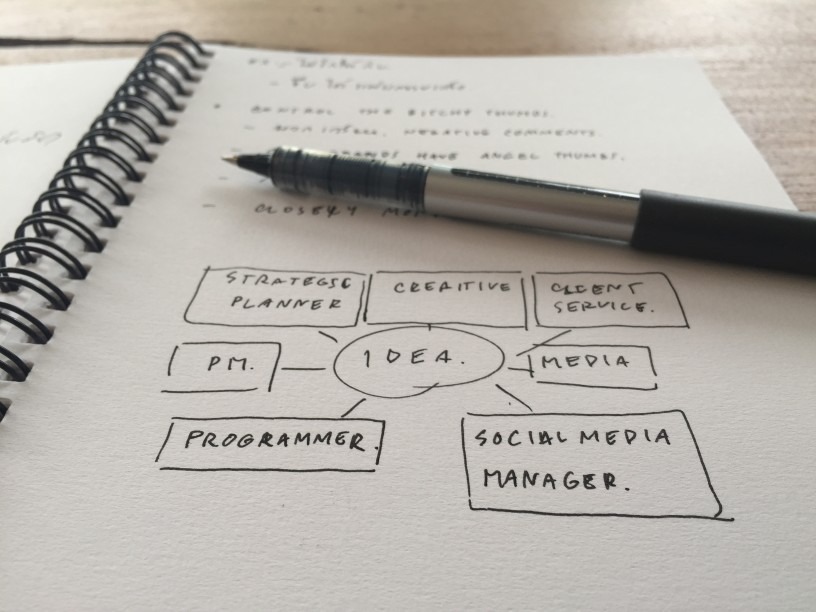 THE BITCHY THUMBS.
NEGATIVE COMMENTS.
HAVE ANGEL THUMBS.
CLOSELY
STRATEGIC PLANNER
CREAITIVE
CLIENT SERVICE.
PM.
IDEA.
MEDIA
PROGRAMMER.
SOCIAL MEDIA
MANAGER.